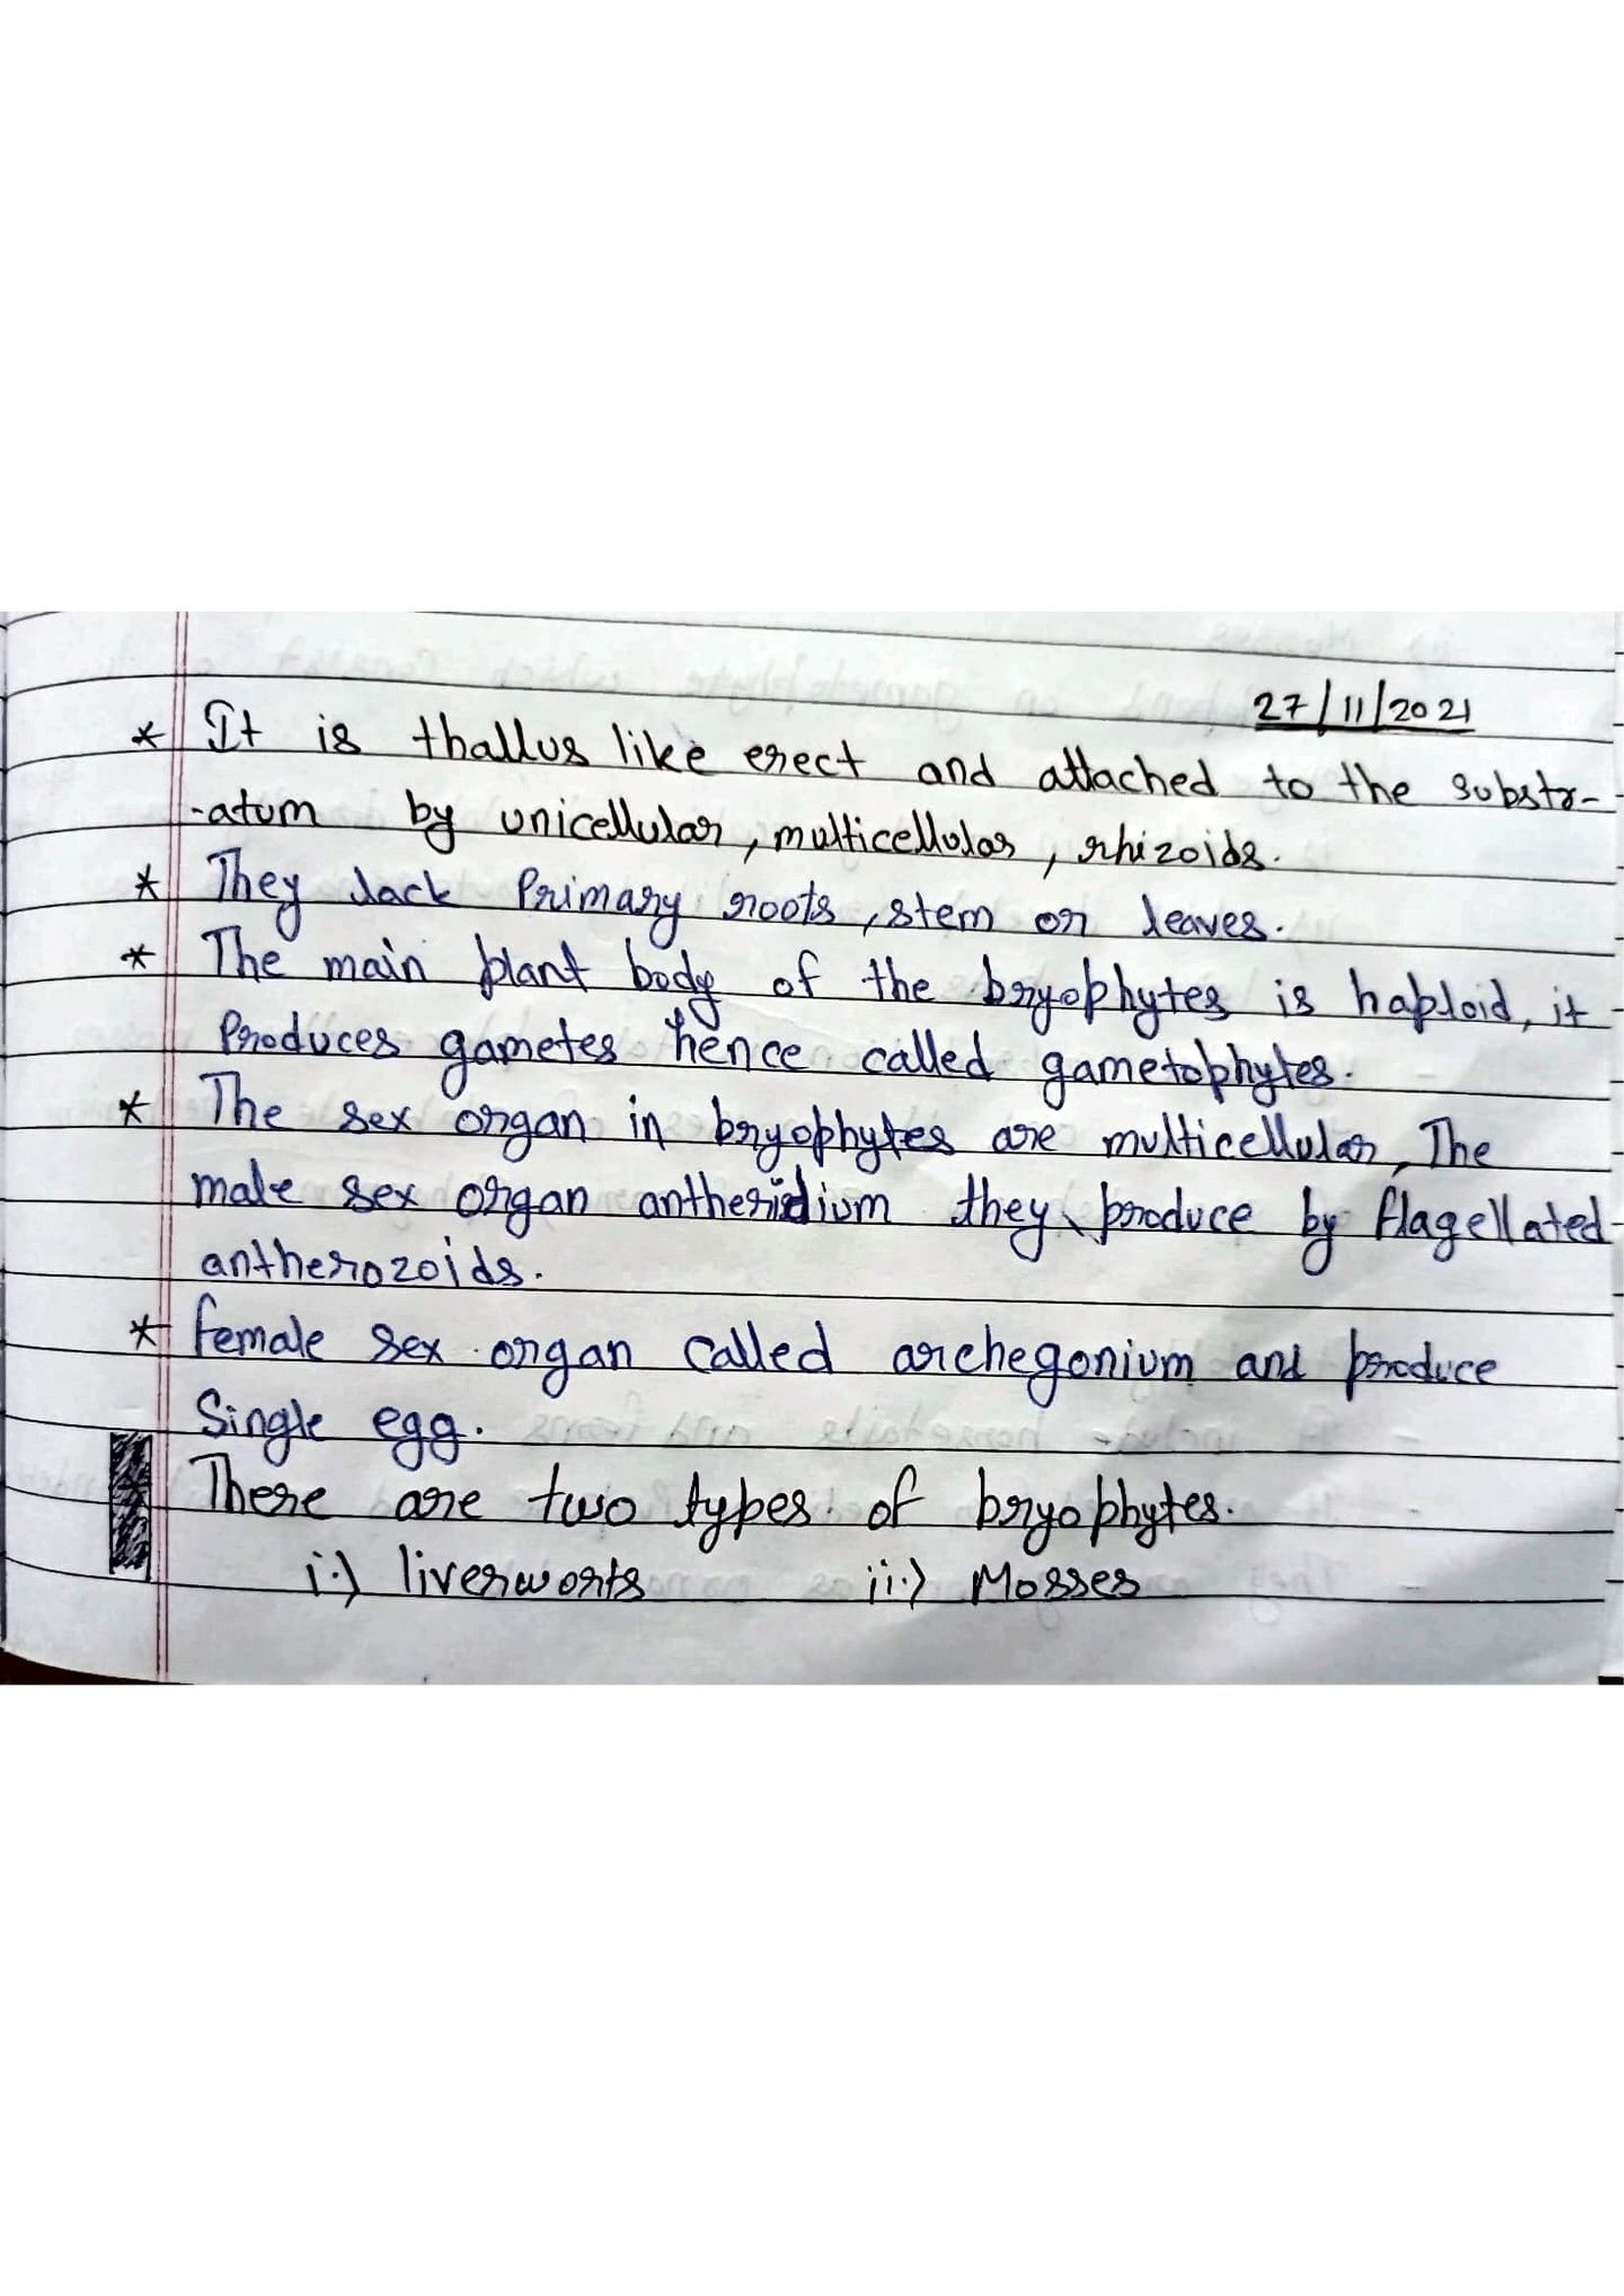 27/11/2021
* It is thallus like erect and attached to the substr-
-atum by unicellular, multicellular, rhizoids.
* They lack Primary roots, stem or leaves.
* The main plant body of the bryophytes is haploid, it
Produces gametes hence called gametophytes.
* The sex organ in bryophytes are multicellular, The
male sex organ antheridium they produce by flagellated
antherozoids.
* female sex organ called archegonium and produce
Single egg.
There are two types of bryophytes.
i.) liverworts ii.) Mosses